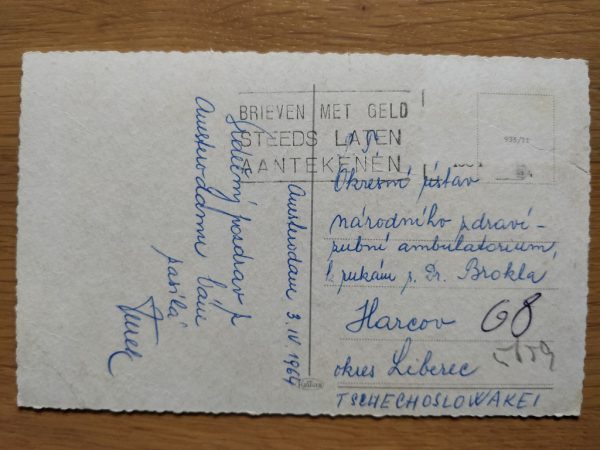 BRIEVEN MET GELD
STEEDS LATEN
AANTEKENEN
933/11
Srdečný pozdrav z
Amsterodamu Vám
posílá
Amsterodam 3.IV 1964
Okresní ústav
národního zdraví -
zubní ambulatorium,
k rukám p. Dr. Brokla
Harcov
68
okres Liberec
TSCHECHOSLOWAKEI